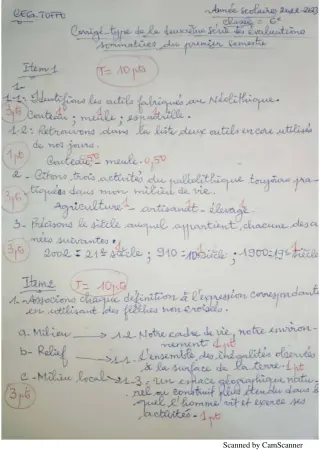 CEG. TOFFO
Année scolaire 2022-2023
classe = 6e
Corrigé-type de la deuxième série des évaluations
sommatives du premier semestre
Item1 T= 10pts
1-
1-1- Identifions les outils fabriqués au Néolithique.
3pts Couteau ; meule ; espadrille.
1-2- Retrouvons dans la liste deux outils encore utilisés
de nos jours.
1pt Couteau 0,50 - meule - 0,50
2 - Citons trois activités du paléolithique toujours pra-
3pts tiquées dans mon milieu de vie.
Agriculture - artisanat - élevage.
3 - Précisons le siècle auquel appartient chacune des an
nées suivantes :
3pts 2002 = 21e siècle ; 910 = 10e siècle ; 1900 = 19e siècle
Item2 T= 10pts
1- Associons chaque définition à l'expression correspondante
en utilisant des flèches non croisées.
a. Milieu → 1-2. Notre cadre de vie, notre environ-
nement 1pt
b- Relief → 1-1. L'ensemble des inégalités observées
à la surface de la terre 1pt
c - Milieu local → 1-3 - Un espace géographique natu-
3pts rel ou construit plus étendu dans le
quel l'homme vit et exerce ses
activités - 1pt
Scanned by CamScanner